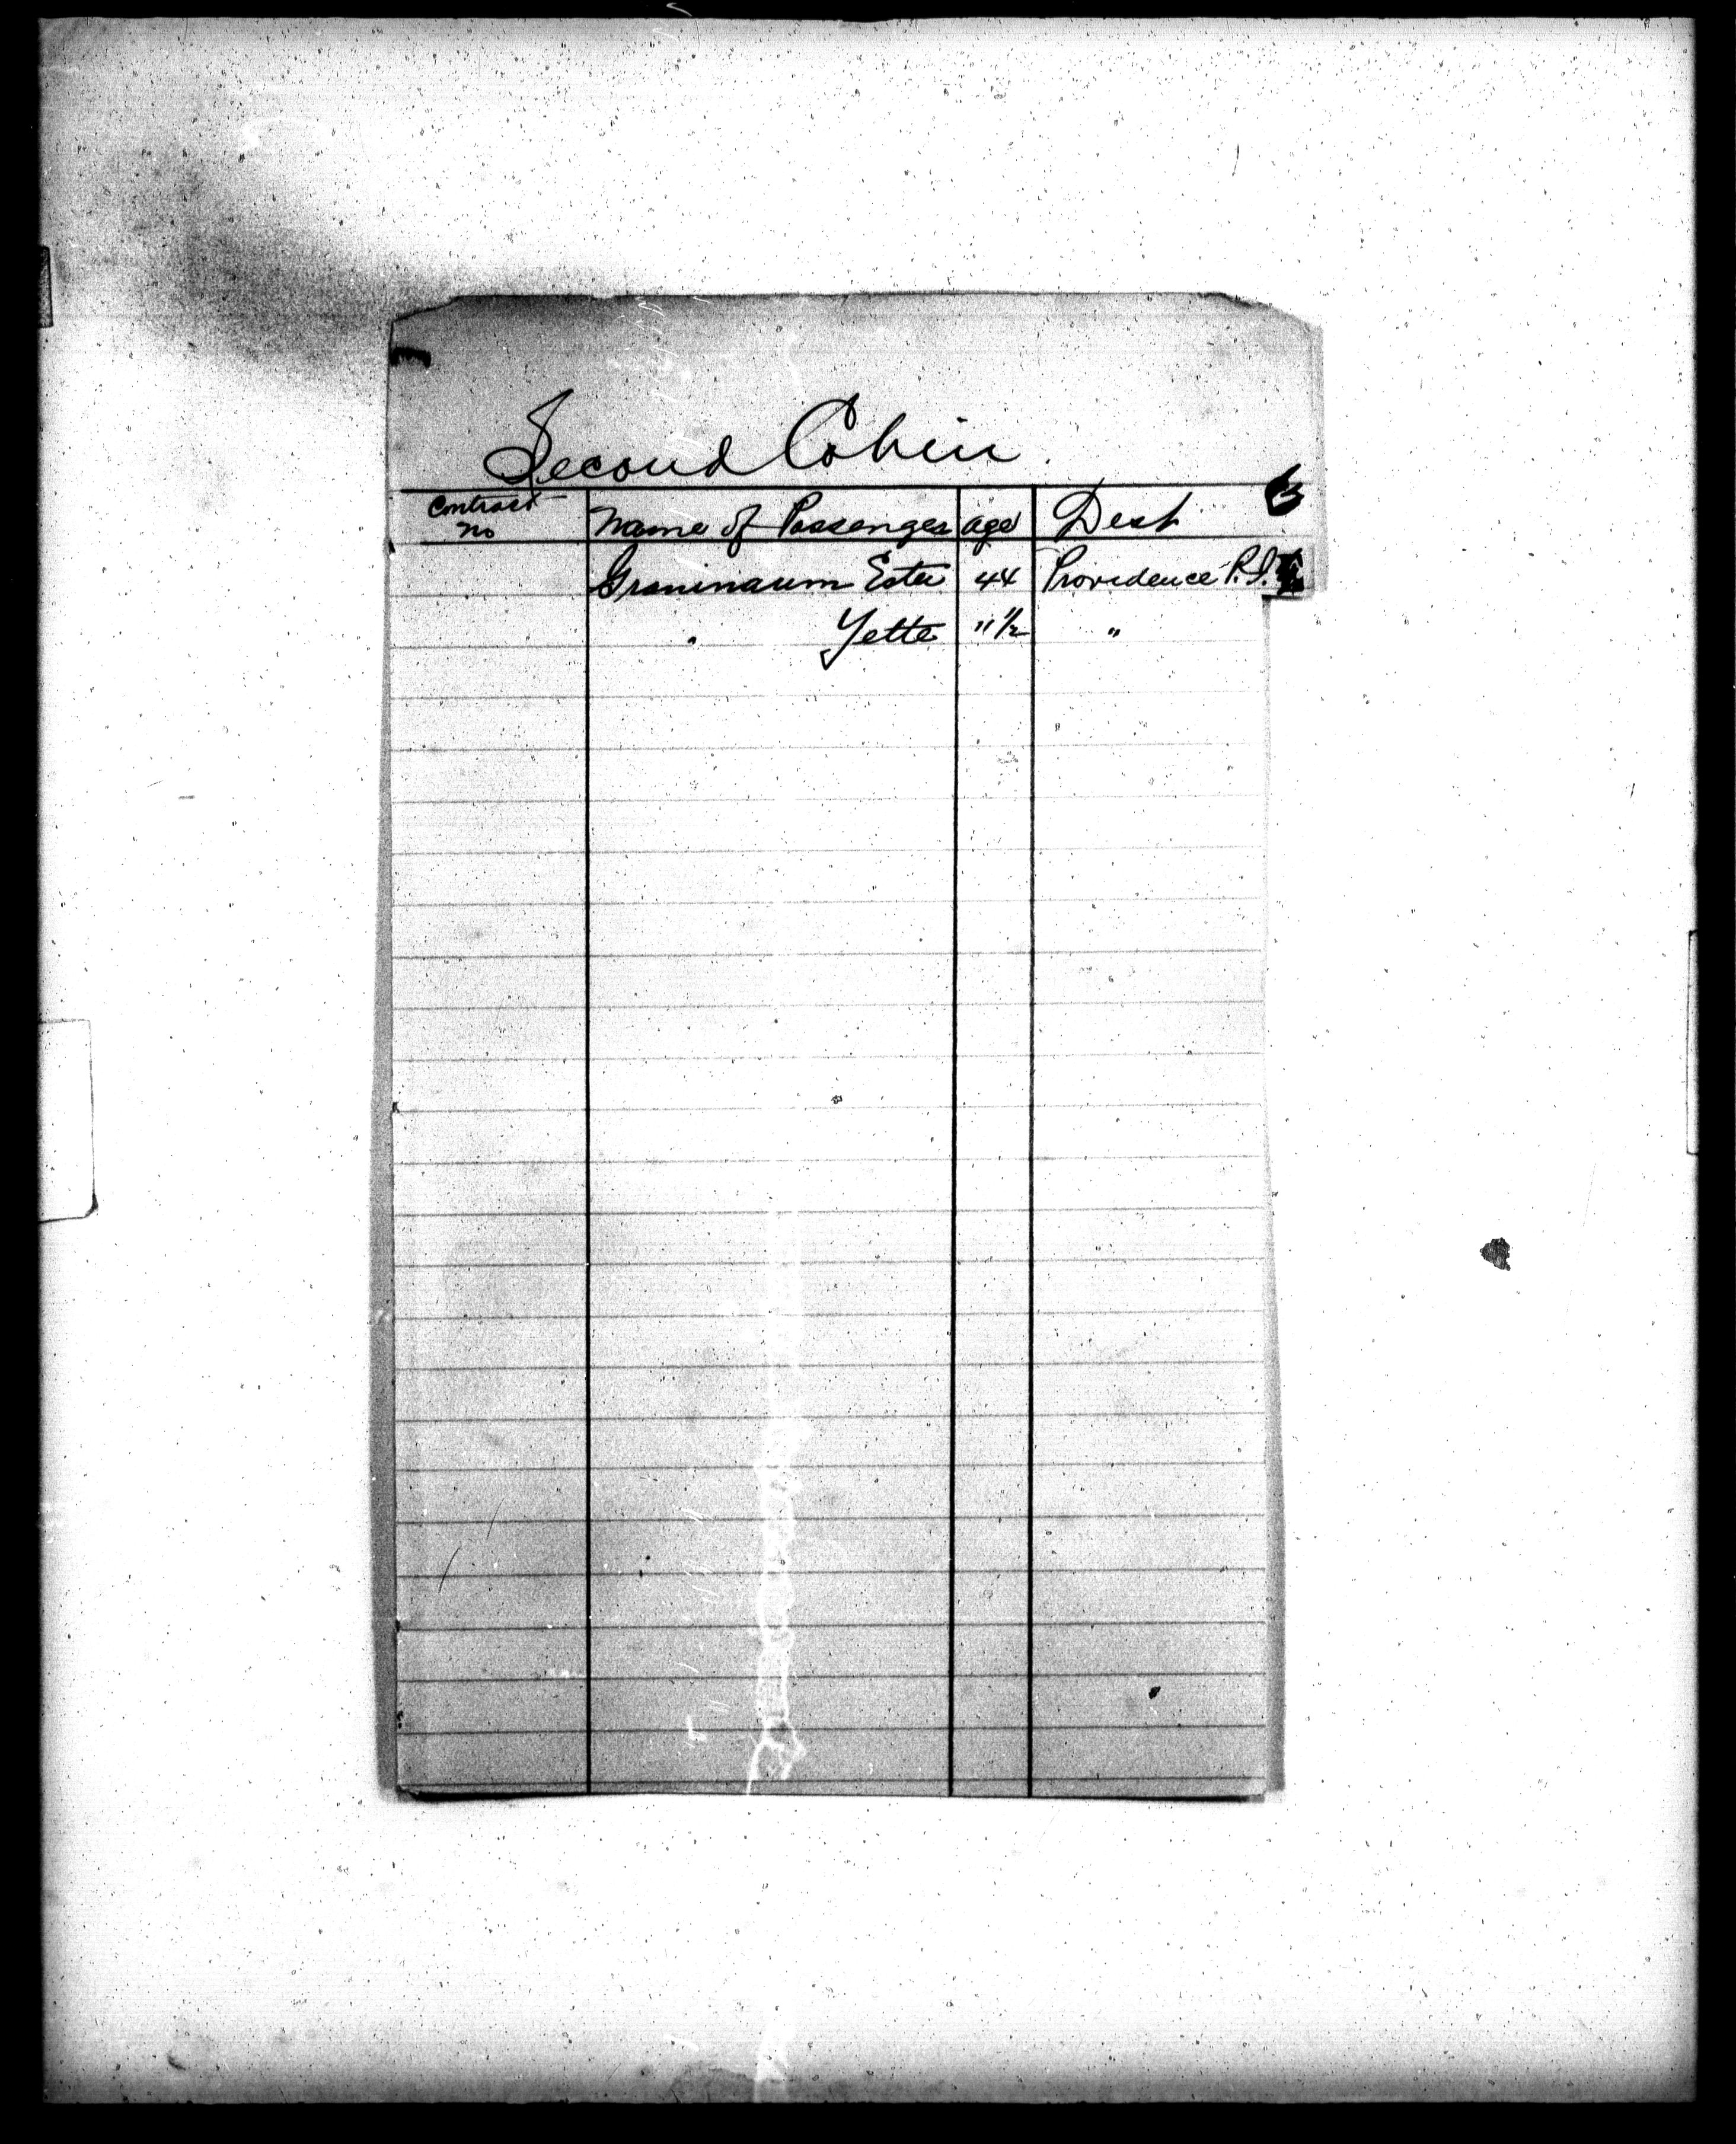 Second Cabin
Contract no Name of Passenger age Dest
Graninaum Ester 44 Providence R.I.
" Yette 11 1/2 "